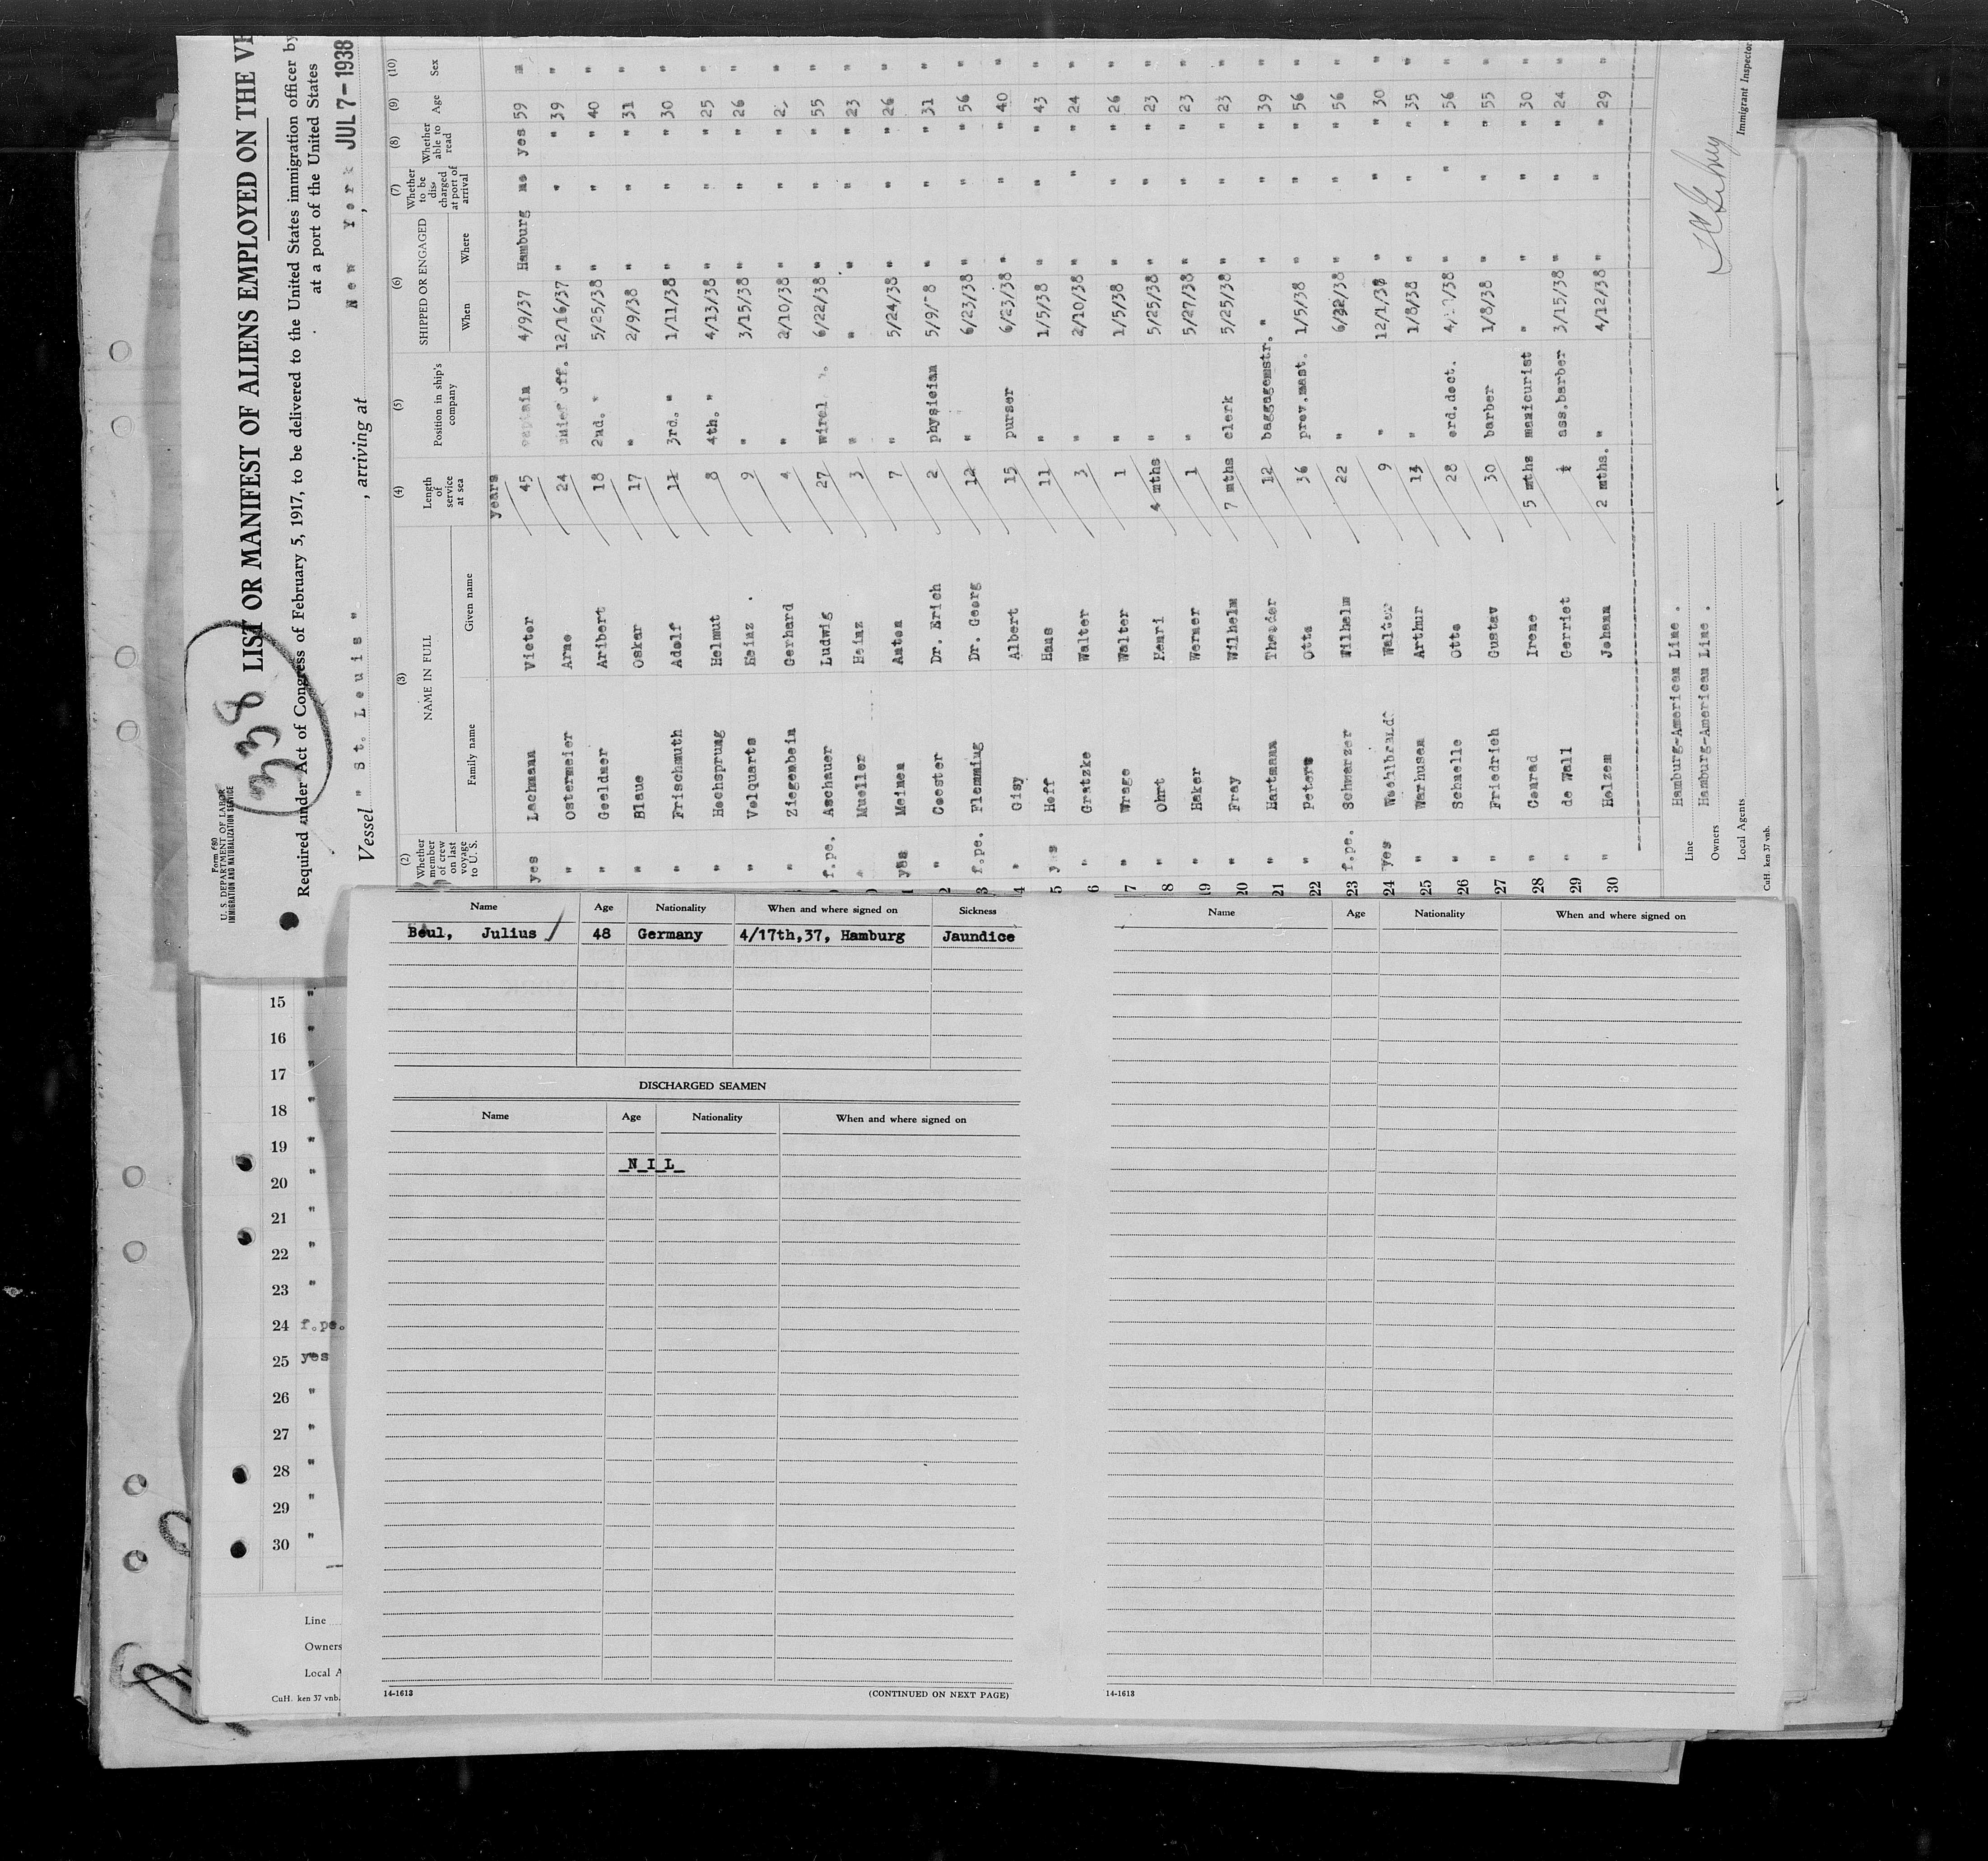 Form 680
U. S. DEPARTMENT OF LABOR
IMMIGRATION AND NATURALIZATION SERVICE
LIST OR MANIFEST OF ALIENS EMPLOYED ON THE
Required under Act of Congress of February 5, 1917, to be delivered to the United States immigration officer by
at a port of the United States
Vessel " St. Louis " , arriving at New York , JUL 7-1938
(2) (3) (4) (5) (6) (7) (8) (9) (10)
Whether member of crew on last voyage to U. S. NAME IN FULL Family name Given name Length of service at sea Position in ship's company SHIPPED OR ENGAGED When Where Whether to be discharged at port of arrival Whether able to read Age Sex
years
yes Lachmann Victor 45 captain 4/9/37 Hamburg no yes 59 m
" Ostermeier Arne 24 chief off. 12/16/37 " " " 39 "
" Geeldner Aribert 18 2nd. " 5/25/38 " " " 40 "
" Blaue Oskar 17 " 2/9/38 " " " 31 "
" Frischmuth Adolf 11 3rd. " 1/11/38 " " " 30 "
" Hochsprung Helmut 8 4th. " 4/13/38 " " " 25 "
" Velquarts Heinz 9 " 3/15/38 " " " 26 "
" Ziegenbein Gerhard 4 " 2/10/38 " " " "
f.pe. Aschauer Ludwig 27 6/22/38 " " " 55 "
" Mueller Heinz 3 " " " " " 23 "
yes Meinen Anton 7 " 5/24/38 " " " 26 "
2 " Coester Dr. Erich 2 physician " " " 31 "
3 f.pe. Flemming Dr. Georg 12 " 6/23/38 " " " 56 "
4 " Gisy Albert 15 purser 6/23/38 " " " 40 "
5 yes Hoff Hans 11 " 1/5/38 " " " 43 "
6 " Gratzke Walter 3 " 2/10/38 " " " 24 "
7 " Wrage Walter 1 " 1/5/38 " " " 26 "
8 " Ohrt Henri 4 mths " 5/25/38 " " " 23 "
19 " Haker Werner 1 " 5/27/38 " " " 23 "
20 " Fray Wilhelm 7 mths clerk 5/25/38 " " " 23 "
21 " Hartmann Theodor 12 baggagemstr. " " " " 39 "
22 " Peters Otto 36 prov.mast. 1/5/38 " " " 56 "
23 f.pe. Schwarzer Wilhelm 22 " 6/22/38 " " " 56 "
24 yes Walter 9 " 12/1/37 " " " 30 "
25 " Warhusen Arthur 14 " 1/8/38 " " " 35 "
26 " Schnelle Otto 28 erd.dect. " " " 56 "
27 " Friedrich Gustav 30 barber 1/8/38 " " " 55 "
28 " Conrad Irene 5 mths manicurist " " " " 30 "
29 " de Wall Gerriet ½ ass.barber 3/15/38 " " " 24 "
30 " Holzem Johann 2 mths. " 4/12/38 " " " 29 "
Line Hamburg-American Line .
Owners Hamburg-American Line .
Local Agents
Immigrant Inspector
CuH. ken 37 vnb.
Name Age Nationality When and where signed on Sickness
Beul, Julius 48 Germany 4/17th,37, Hamburg Jaundice
DISCHARGED SEAMEN
Name Age Nationality When and where signed on
N I L
14-1613 (CONTINUED ON NEXT PAGE)
Name Age Nationality When and where signed on
14-1613
15 "
16 "
17 "
18 "
19 "
20 "
21 "
22 "
23 "
24 f.pe.
25 yes
26 "
27 "
28 "
29 "
30 "
Line
Owners
Local A
CuH. ken 37 vnb.